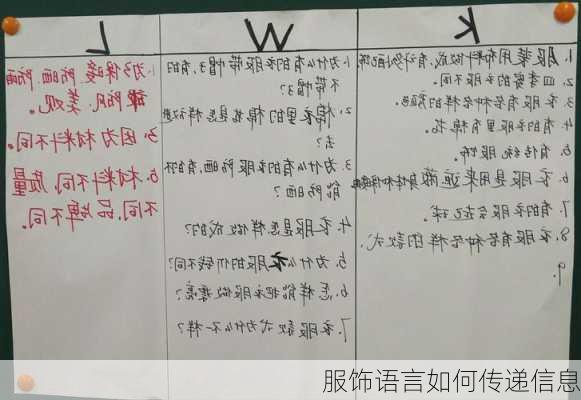 K
1. 服装用布料做成,有许多
2. 四季穿的衣服不同。
3. 衣服有各种各样的颜色。
4. 有的衣服里有棉花。
5. 有传统服饰。
6. 衣服是用来遮蔽身体和
7. 有的衣服会起球。
8. 衣服有各种各样的款式。
9.
W
1. 为什么有的衣服带帽子,有的
不带帽子?
2. 棉衣里的棉花是怎样放进
去?
3. 为什么有的衣服防晒,有的不
能防晒?
4. 衣服是怎样做成的?
5. 为什么衣服的价钱不同?
6. 怎样能把衣服做漂亮?
7. 衣服款式为什么不一样?
L
1. 为了保暖 防晒 防雨
防风、美观。
3. 因为材料不同。
5. 材料不同,质量
不同,品牌不同。
服饰语言如何传递信息